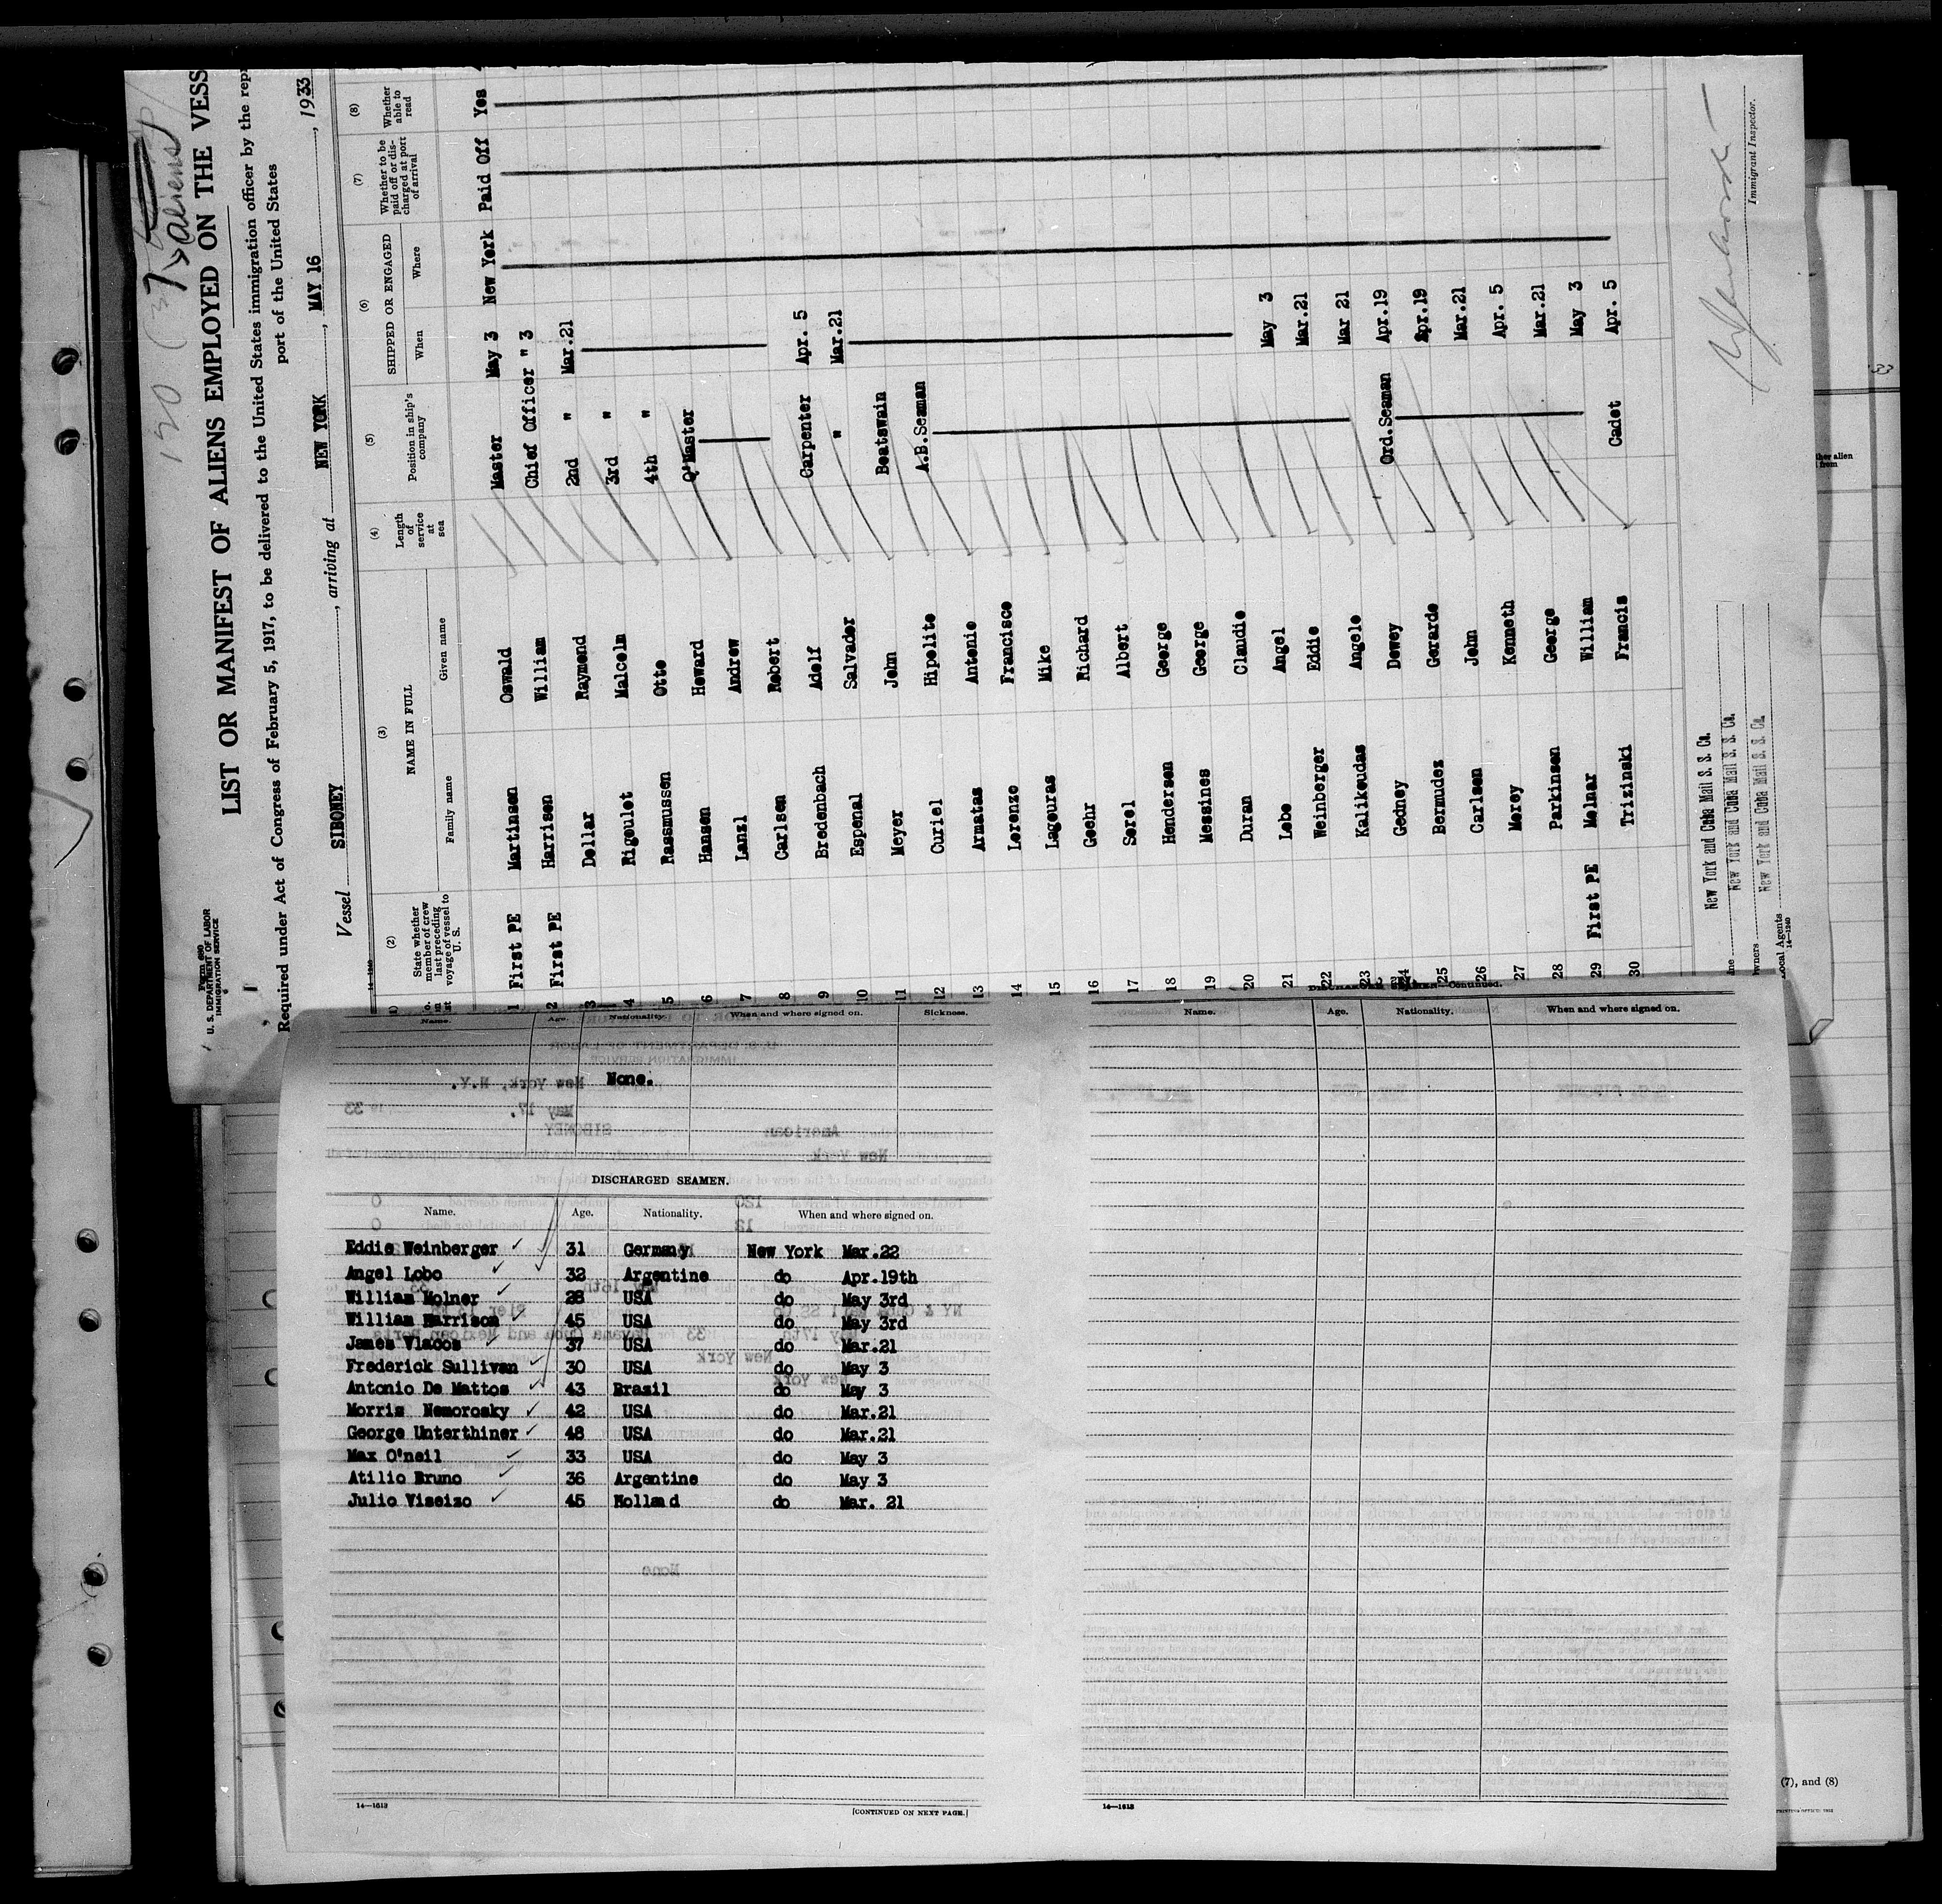 Form 680
U. S. DEPARTMENT OF LABOR
IMMIGRATION SERVICE
120 (37 aliens)
LIST OR MANIFEST OF ALIENS EMPLOYED ON THE VESS
Required under Act of Congress of February 5, 1917, to be delivered to the United States immigration officer by the repr
port of the United States
Vessel SIBONEY, arriving at NEW YORK, MAY 16, 1933
14—1240
(2) (3) (4) (5) (6) (7) (8)
State whether member of crew last preceding voyage of vessel to U. S.
NAME IN FULL
Family name Given name
Length of service at sea
Position in ship's company
SHIPPED OR ENGAGED
When Where
Whether to be paid off or discharged at port of arrival
Whether able to read
1 First PE Martinsen Oswald Master May 3 New York Paid Off Yes
2 First PE Harrisen William Chief Officer " 3
3 Dellar Raymond 2nd " Mar.21
4 Rigoulet Malcolm 3rd "
5 Rasmussen Otto 4th "
6 Hansen Howard Q'Master
7 Lanzl Andrew
8 Carlsen Robert
9 Bredenbach Adolf Carpenter Apr. 5
10 Espenal Salvader " Mar.21
11 Meyer John Boatswain
12 Curiel Hipolite A.B.Seaman
13 Armatas Antonio
14 Lorenzo Francisco
15 Lagouras Mike
16 Goehr Richard
17 Sorel Albert
18 Hendersen George
19 Messines George
20 Duran Claudie
21 Lobo Angel May 3
22 Weinberger Eddie Mar.21
23 Kalikoudas Angelo Mar 21
24 Gedney Dewey Ord.Seaman Apr.19
25 Bermudez Gerardo Apr.19
26 Carlsen John Mar.21
27 Morey Kenneth Apr. 5
28 Parkinsen George Mar.21
29 First PE Molnar William May 3
30 Trizinski Francis Cadet Apr. 5
New York and Cuba Mail S. S. Co.
New York and Cuba Mail S. S. Co.
wners New York and Cuba Mail S. S. Co.
ocal Agents
14—1240
Immigrant Inspector.
Name. Age. Nationality. When and where signed on. Sickness.
None.
DISCHARGED SEAMEN.
Name. Age. Nationality. When and where signed on.
Eddie Weinberger 31 Germany New York Mar.22
Angel Lobo 32 Argentine do Apr.19th
William Molner 28 USA do May 3rd
William Harrison 45 USA do May 3rd
James Vlacos 37 USA do Mar.21
Frederick Sullivan 30 USA do May 3
Antonio De Mattos 43 Brazil do May 3
Morris Nemorosky 42 USA do Mar.21
George Unterthiner 48 USA do Mar.21
Max O'neil 33 USA do May 3
Atilio Bruno 36 Argentine do May 3
Julio Viseizo 45 Holland do Mar. 21
14—1613
[CONTINUED ON NEXT PAGE.]
DISCHARGED SEAMEN—Continued.
Name. Age. Nationality. When and where signed on.
14—1613
33
ther alien
(7), and (8)